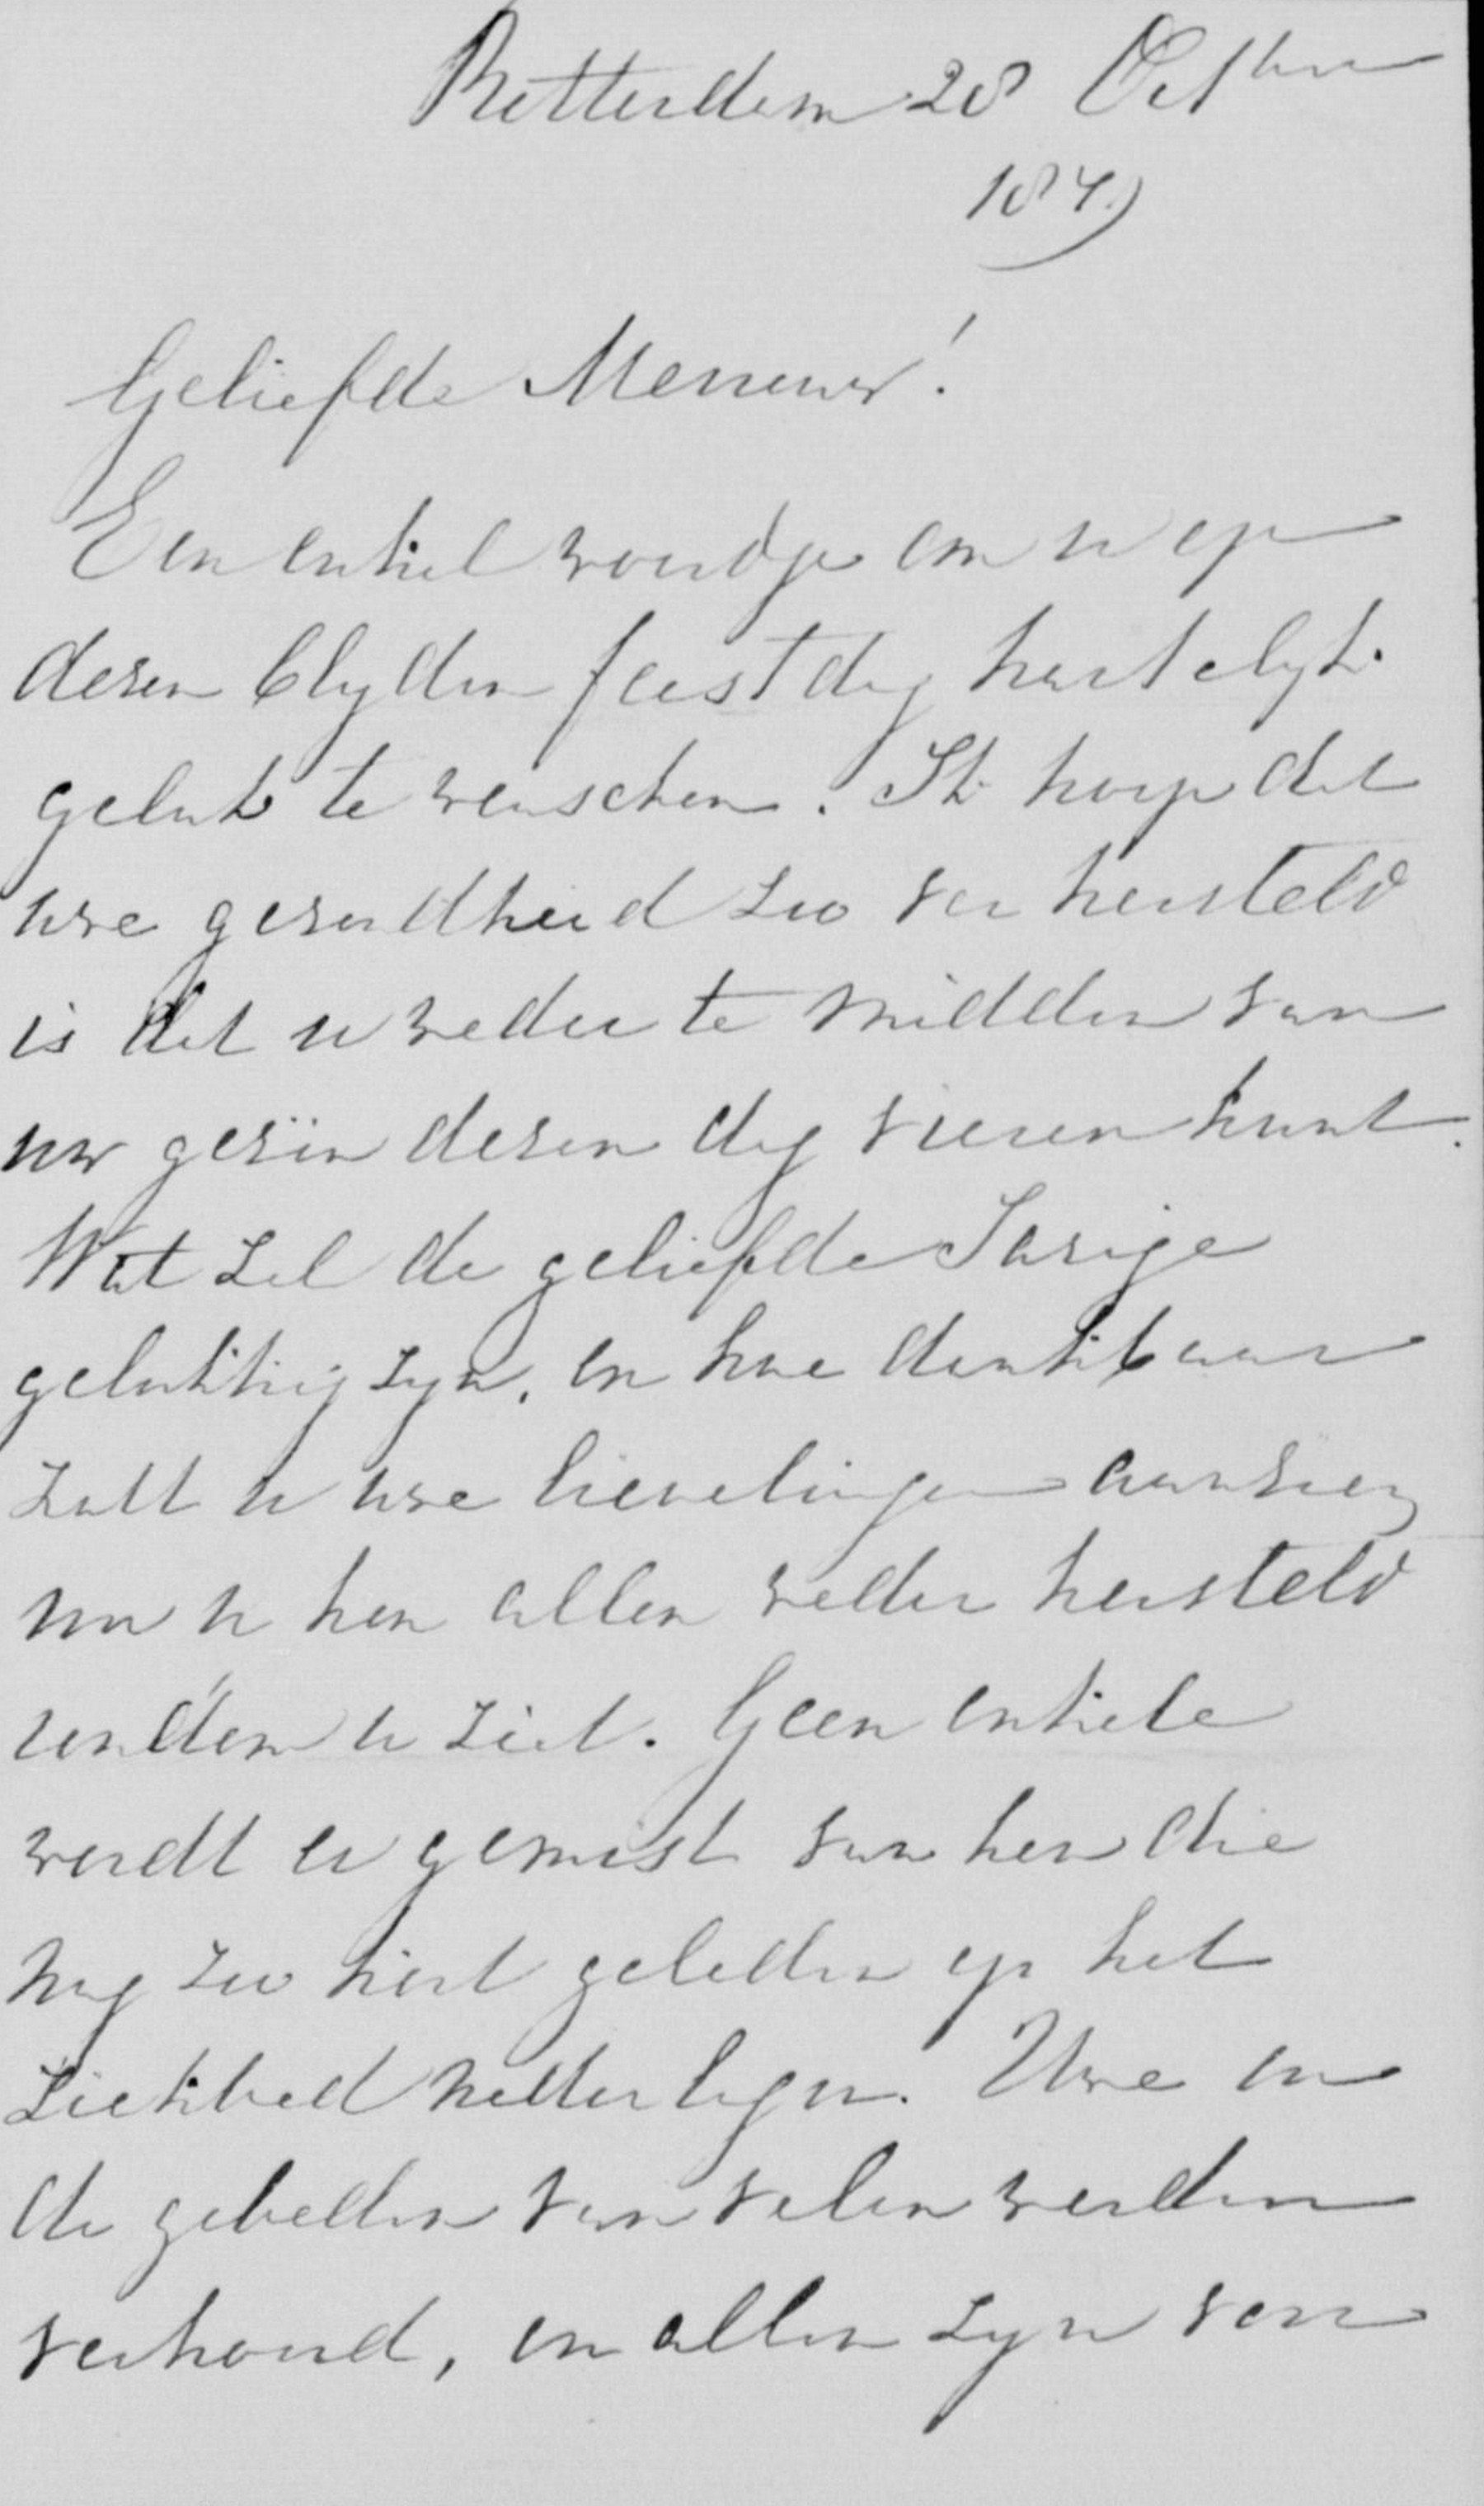 Rotterdam 28 Octber
187
Geliefde Mevrouw!
Een enkel woordje om u op
dezen blyden feestdag hartelyk
geluk te wenschen. Ik hoop dat
uwe gezondheid zoo ver hersteld
is dat u weder te midden van
uw gezin dezen dag vieren kunt.
Wat zal de geliefde Jarige
gelukkig zyn, en hoe dankbaar
zult u uwe lievelingen aanzien
nu u hen allen weder hersteld
rondom u ziet. Geen enkele
wordt er gemist van hen die
nog zoo kort geleden op het
ziekbed nederlagen. Uwe en
de gebeden van velen werden
verhoord, en allen zyn van